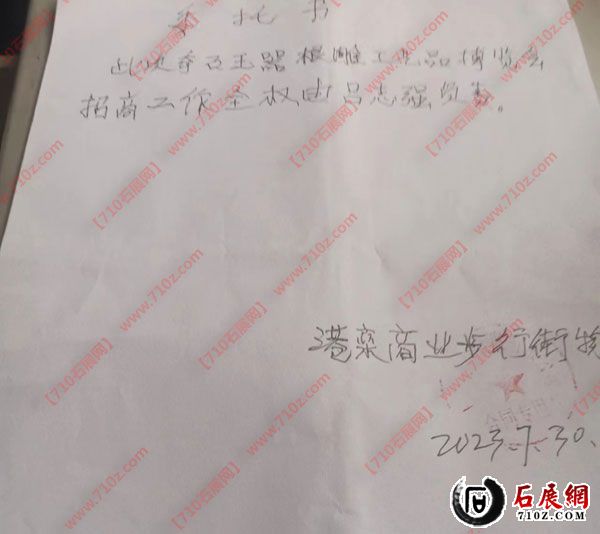 委托书
此次奇石玉器根雕工艺品博览会
招商工作全权由吕志强负责。
港栾商业步行街物
合同专用
2023.7.30.
石展網
710z.COM
【710石展网】www.710z.com